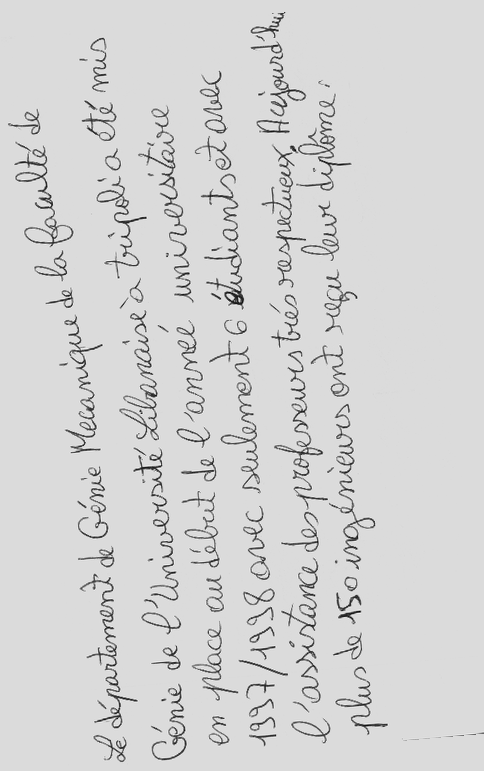 Le département de Génie Mecanique de la Faculté de
Génie de l'Université Libanaise à tripoli a été mis
en place au début de l'année universitaire
1997/1998 avec seulement 6 étudiants et avec
l'assistance des professeurs très respectueux. Aujourd'hui
plus de 150 ingénieurs ont reçu leur diplôme.